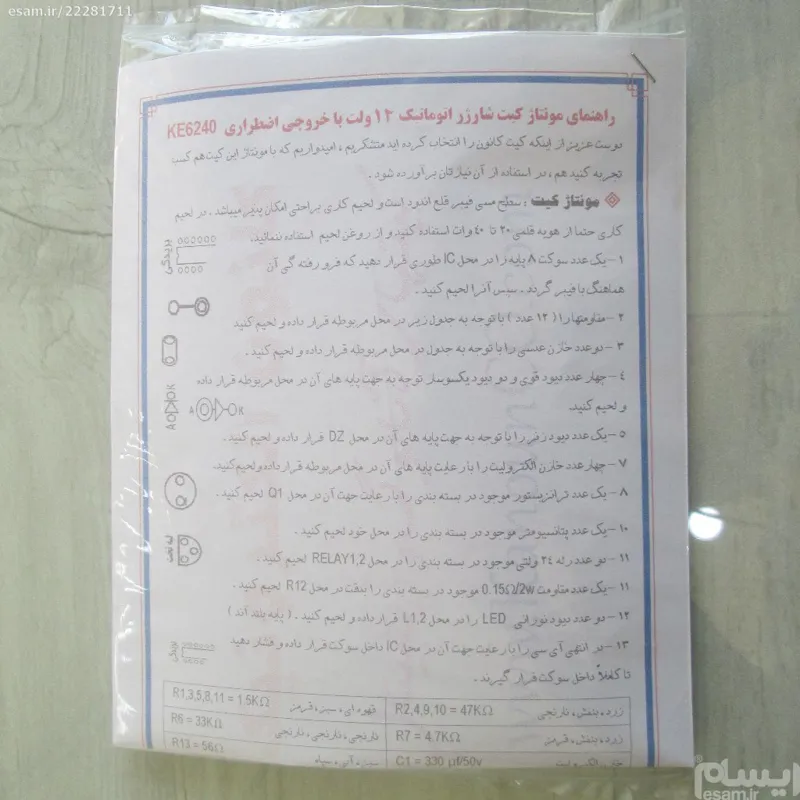 esam.ir/22281711
راهنمای مونتاژ کیت شارژر اتوماتیک ۱۲ ولت با خروجی اضطراری KE6240
دوست عزیز از اینکه کیت کانون را انتخاب کرده اید متشکریم ، امیدواریم که با مونتاژ این کیت هم کسب
تجربه کنید هم ، در استفاده از آن نیازتان برآورده شود .
مونتاژ کیت : سطح مسی فیبر قلع اندود است و لحیم کاری براحتی امکان پذیر میباشد . در لحیم
کاری حتما از هویه قلمی ۲۰ تا ۴۰ وات استفاده کنید و از روغن لحیم استفاده ننمائید.
۱ – یک عدد سوکت ۸ پایه را در محل IC طوری قرار دهید که فرو رفته گی آن
بریدگی
هماهنگ با فیبر گردد . سپس آنرا لحیم کنید .
۲ – مقاومتها را ( ۱۲ عدد ) با توجه به جدول زیر در محل مربوطه قرار داده و لحیم کنید
۳ – دو عدد خازن عدسی را با توجه به جدول در محل مربوطه قرار داده و لحیم کنید .
۴ – چهار عدد دیود قوی و دو دیود یکسوساز توجه به جهت پایه های آن در محل مربوطه قرار داده
و لحیم کنید.
A K
A K
۵ – یک عدد دیود زنر را با توجه به جهت پایه های آن در محل DZ قرار داده و لحیم کنید .
۷ – چهار عدد خازن الکترولیت را با رعایت پایه های آن در محل مربوطه قرار داده و لحیم کنید.
۸ – یک عدد ترانزیستور موجود در بسته بندی را با رعایت جهت آن در محل Q1 لحیم کنید .
۱۰ – یک عدد پتانسیومتر موجود در بسته بندی را در محل خود لحیم کنید .
لبه تخت
۱۱ – دو عدد رله ۲۴ ولتی موجود در بسته بندی را در محل RELAY1,2 لحیم کنید .
۱۱ – یک عدد مقاومت 0.15Ω/2w موجود در بسته بندی را بدقت در محل R12 لحیم کنید .
۱۲ – دو عدد دیود نورانی LED را در محل L1,2 قرار داده و لحیم کنید . ( پایه بلند آند )
۱۳ – در انتهی آی سی را با رعایت جهت آن در محل IC داخل سوکت قرار داده و فشار دهید
بریدگی
تا کاملاً داخل سوکت قرار گیرند .
زرد ، بنفش ، نارنجی R2,4,9,10 = 47KΩ قهوه ای ، سبز ، قرمز R1,3,5,8,11 = 1.5KΩ
زرد ، بنفش ، قرمز R7 = 4.7KΩ نارنجی ، نارنجی ، نارنجی R6 = 33KΩ
خازن الکترولیت C1 = 330 µf/50v سبز ، آبی ، سیاه R13 = 56Ω
ایسام
esam.ir